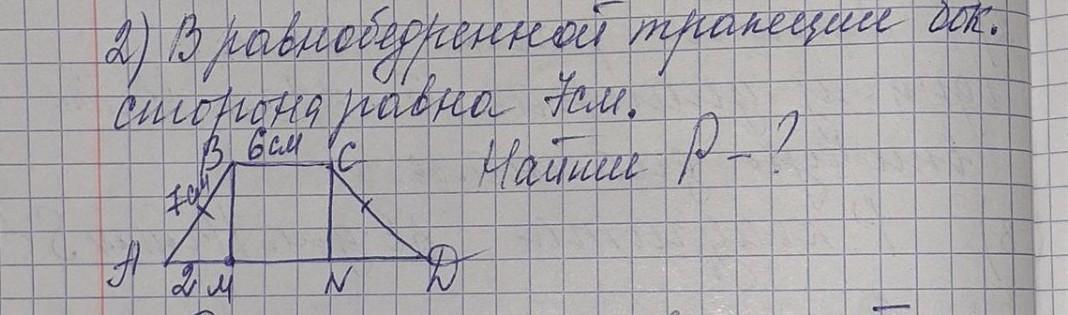 2) В равнобедренной трапеции бок.
сторона равна 7см.
Найти P - ?
B 6см C
7см
A 2 M N D